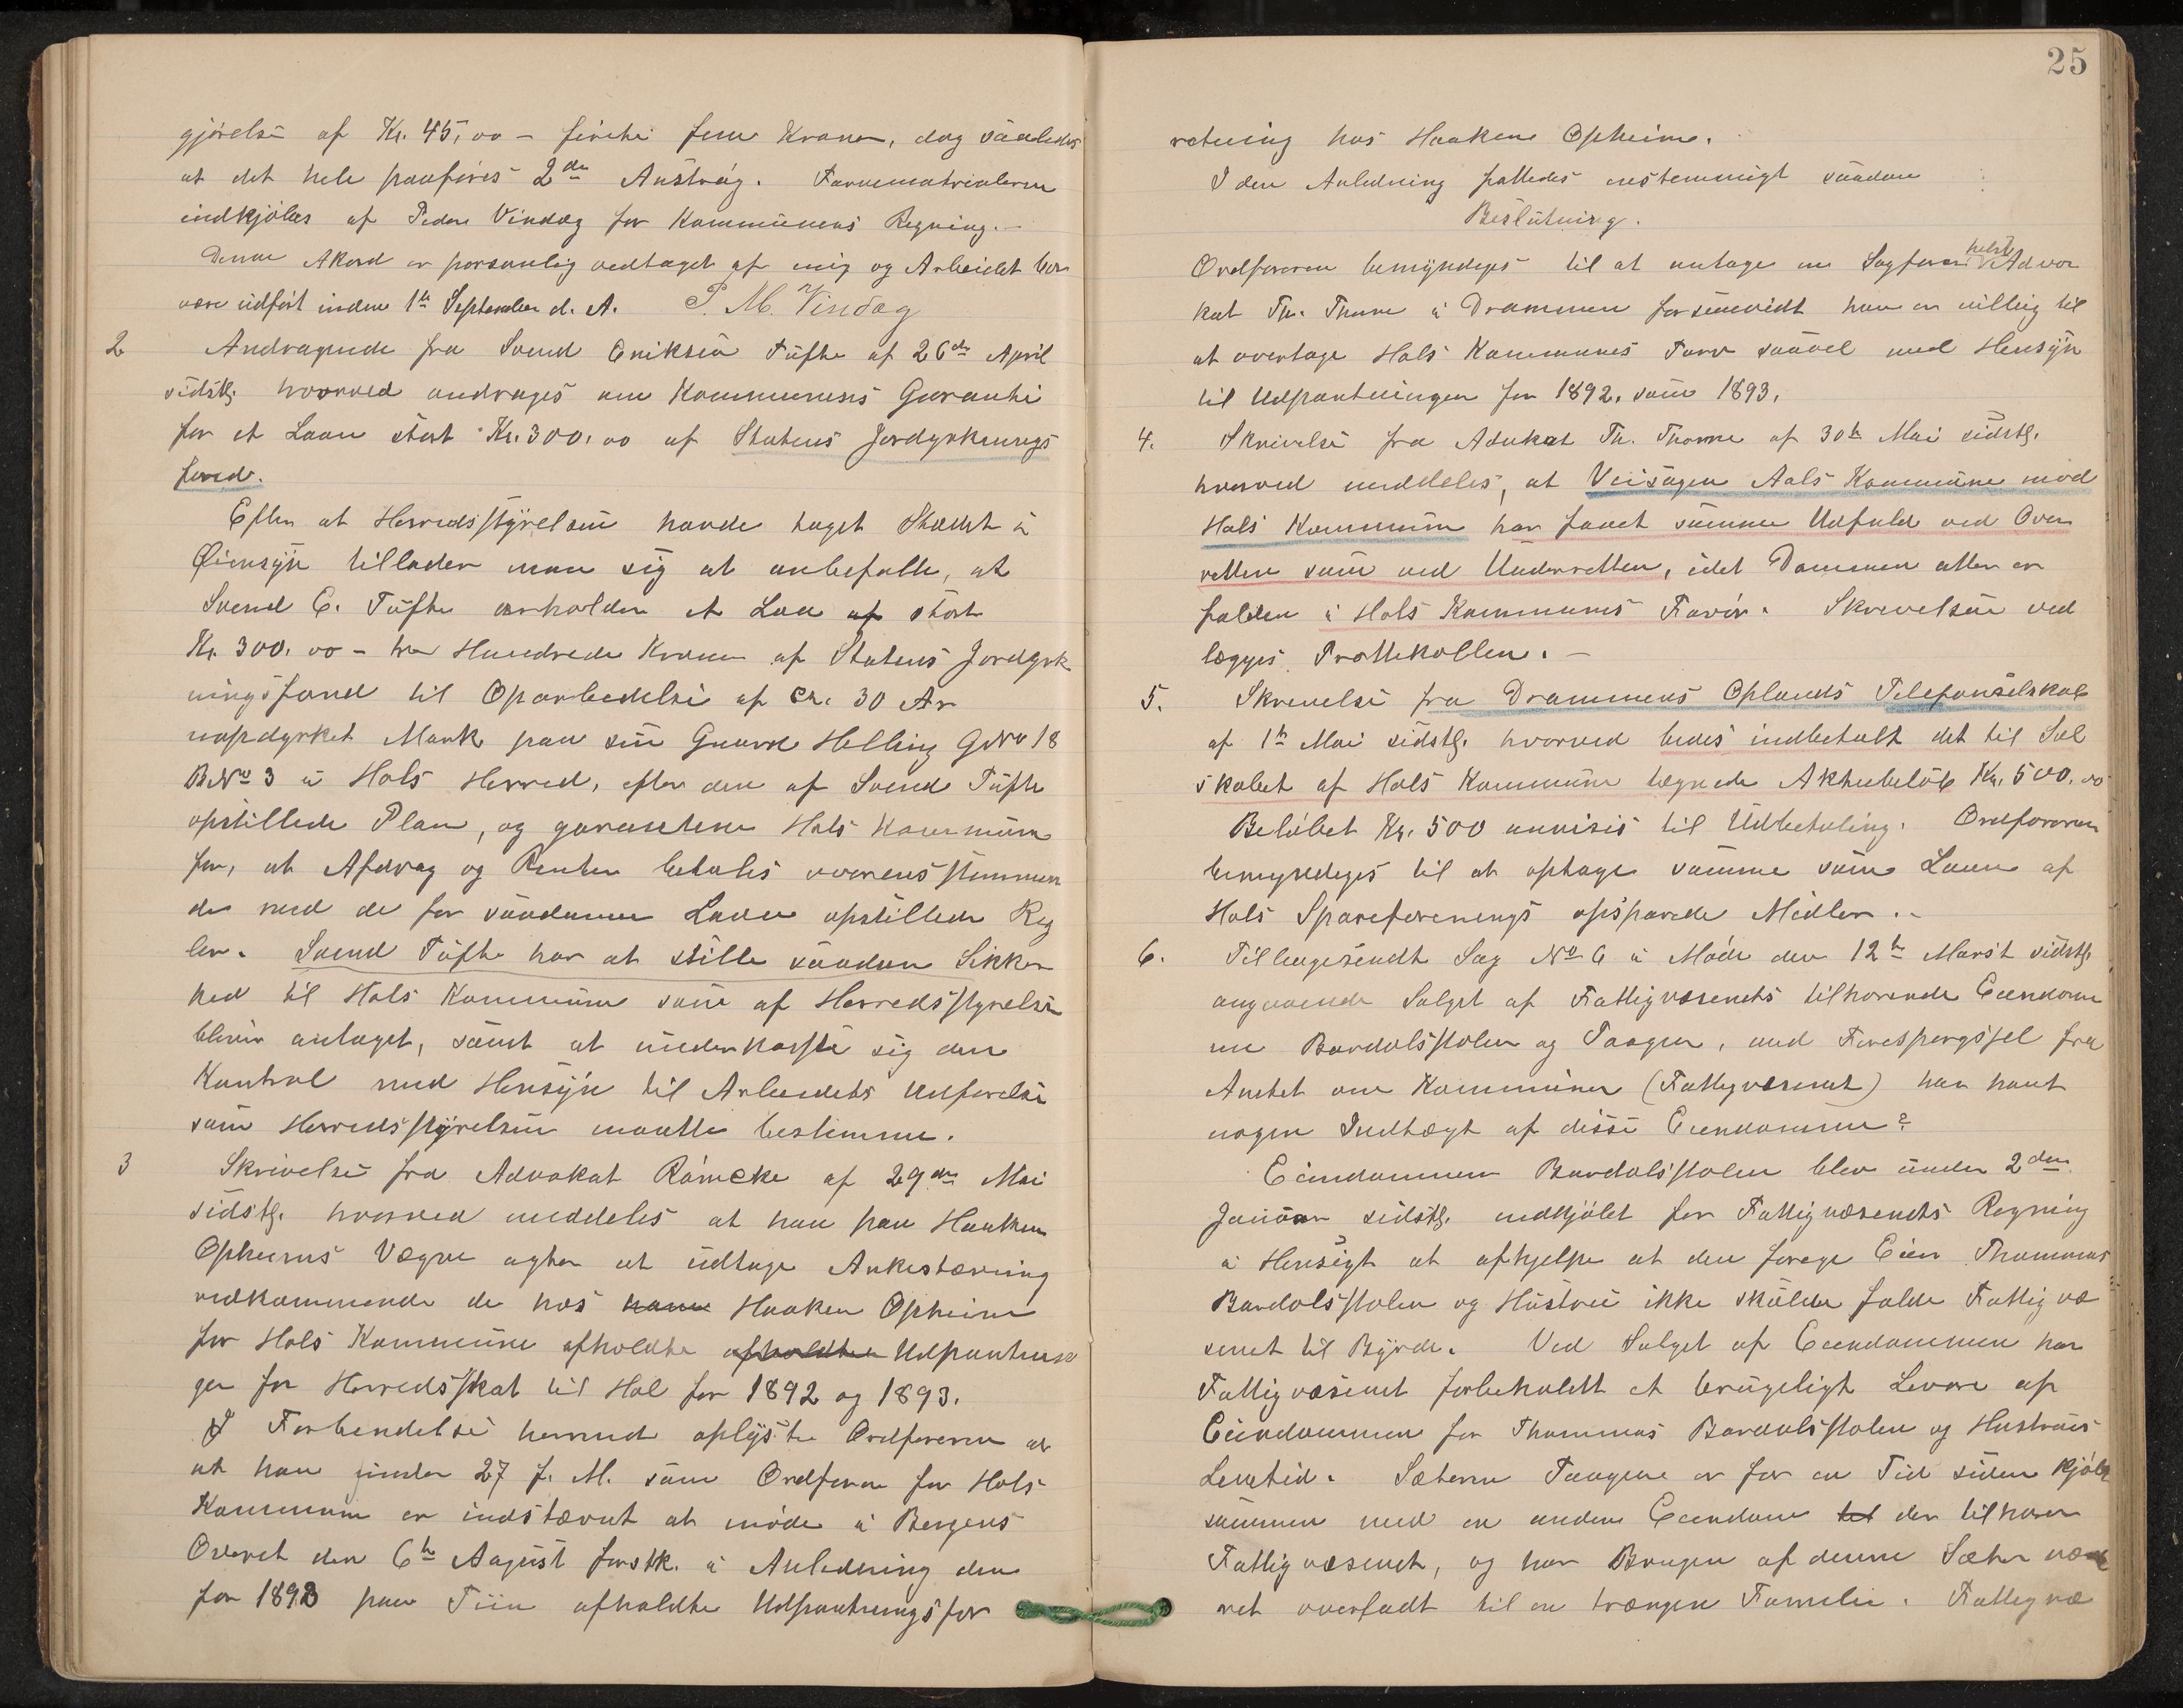 gjørelse af Kr. 45,00 – firti fem Kroner, dog saaledes
at det hele paaføres 2de Anstrøg. Farvematerialerne
indkjøbes af Peder Vindag for Kommunens Regning. –
Denne Akord er personlig vedtaget af mig og Arbeidet bør
være udført inden 1te September d. A. P. M. Vindag
2 Andragende fra Svend Eriksen Tufte af 26de April
sidstl. hvorved andrages om Kommunens Garanti
for et Laan stort Kr. 300,00 af Statens Jordyrknings
fond.
Efter at Herredsstyrelsen havde taget Stedet i
Øiensyn tillader man sig at anbefalle, at
Svend E. Tufte erholder et Laa af stort
Kr. 300,00 – tre Hundrede Kroner af Statens Jordyrk
ningsfond til Oparbeidelse af ca. 30 Ar
uopdyrket Mark paa sin Gaard Helling GNo 18
BNo 3 i Hols Herred, efter den af Svend Tufte
opstillede Plan, og garanterer Hols Kommune
for, at Afdrag og Renter betales overensstemmen
de med de for saadanne Laan opstillede Reg
ler. Svend Tufte har at stille saadan Sikker
hed til Hols Kommune som af Herredsstyrelsen
bliver antaget, samt at underkaste sig den
Kontrol med Hensyn til Arbeidets Udførelse
som Herredsstyrelsen maatte bestemme.
3 Skrivelse fra Advokat Römcke af 29de Mai
sidstl. hvorved meddeles at han paa Haaken
Opheims Vegne agter at udtage Ankestævning
vedkommende de hos ham Haaken Opheim
for Hols Kommune afholdte afholdte Udpantnin
ger for Herredsskat til Hol for 1892 og 1893.
I Forbindelse hermed oplyste Ordføreren at
at han under 27 f. M. som Ordfører for Hols
Kommune er indstævnt at møde i Bergens
Overret den 6te August førstk. i Anledning den
for 1893 paa Tiin afholdte Udpantningsfor
25
retning hos Haaken Opheim.
I den Anledning fattedes enstemmigt saadan
Beslutning.
Ordføreren bemyndiges til at antage en Sagfører helst Advo
kat Th. Thorne i Drammen forsaavidt han er villig til
at overtage Hols Kommunes Tarv saavel med Hensyn
til Udpantningen for 1892, som 1893.
4. Skrivelse fra Advokat Th. Thorne af 30te Mai sidstl.
hvorved meddeles, at Veisagen Aals Kommune mod
Hols Kommune har faaet samme Udfald ved Over
retten som ved Underretten, idet Dommen atter er
falden i Hols Kommunes Favør. Skrivelsen ved
lægges Prottekollen. –
5. Skrivelse fra Drammens Oplands Telefonselskab
af 1te Mai sidstl. hvorved bedes indbetalt det til Sel
skabet af Hols Kommune tegnede Aktiebeløb Kr. 500,00
Beløbet Kr. 500 anvises til Udbetaling. Ordføreren
bemyndiges til at optage samme som Laan af
Hols Spareforenings opsparede Midler. –
6. Tilbagesendt Sag No 6 i Møde den 12te Marst sidstl.
angaaende Salget af Fattigvæsenets tilhørende Eiendom
me Bardolsstølen og Taagen, med Forespørgssel fra
Amtet om Kommunen (Fattigvæsenet) har havt
nogen Indtægt af disse Eiendomme?
Eiendommen Bardolsstølen blev under 2den
Januar sidstl. indkjøbt for Fattigvæsenets Regning
i Hensigt at afhjelpe at den forrige Eier Thommas
Bardolsstølen og Hustru ikke skulde falde Fattigvæ
senet til Byrde. Ved Salget af Eiendommen har
Fattigvæsenet forbeholdt et brugeligt Levøre af
Eiendommen for Thommas Bardolsstølen og Hustrues
Levetid. Sæteren Taagene er for en Tid siden kjøbt
sammen med en anden Eiendom tel der tilhører
Fattigvæsenet, og har Brugen af denne Sæter væ
ret overladt til en trængen Familie. Fattigvæ